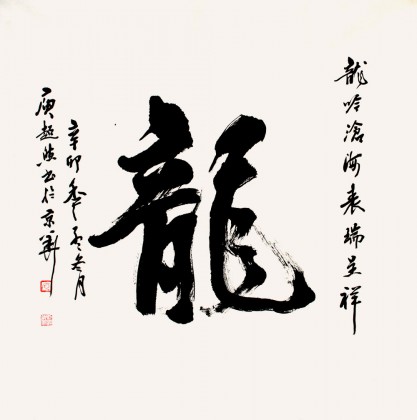 龍吟滄海表瑞呈祥
龍
辛卯年孟冬月
庚超然書於京華